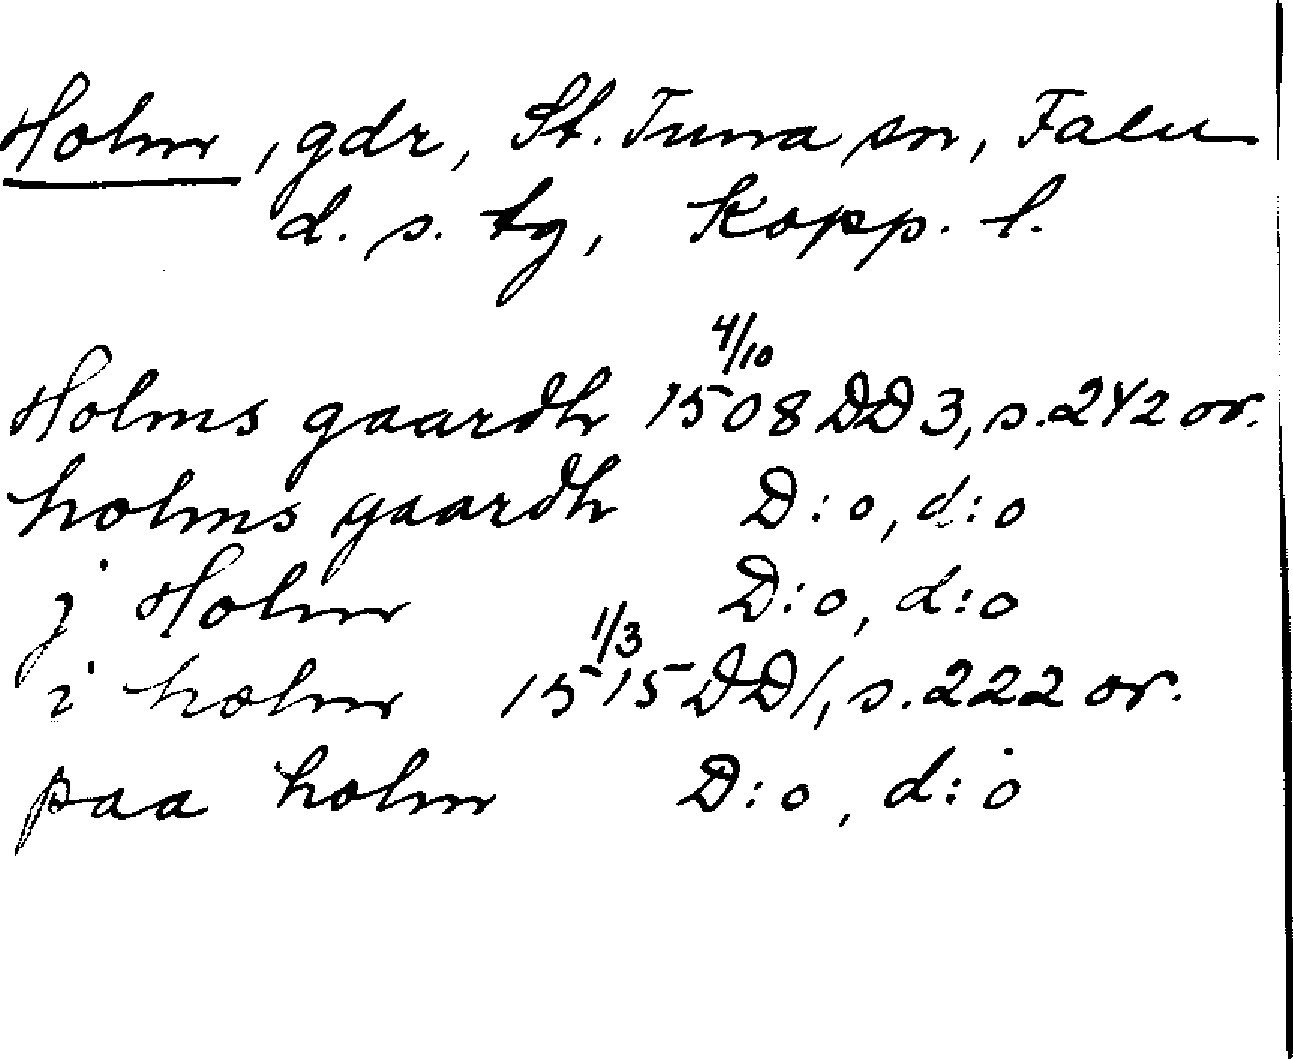 Holm, gdr, St. Tuna sn, Falu
d. s. tg, Kopp. l.
Holms gaardh 4/10 1508 DD 3, s. 242 or.
holms gaardh D:o, d:o
j Holm D:o, d:o
i holm 1/3 1515 DD 1, s. 222 or.
paa holm D:o, d:o